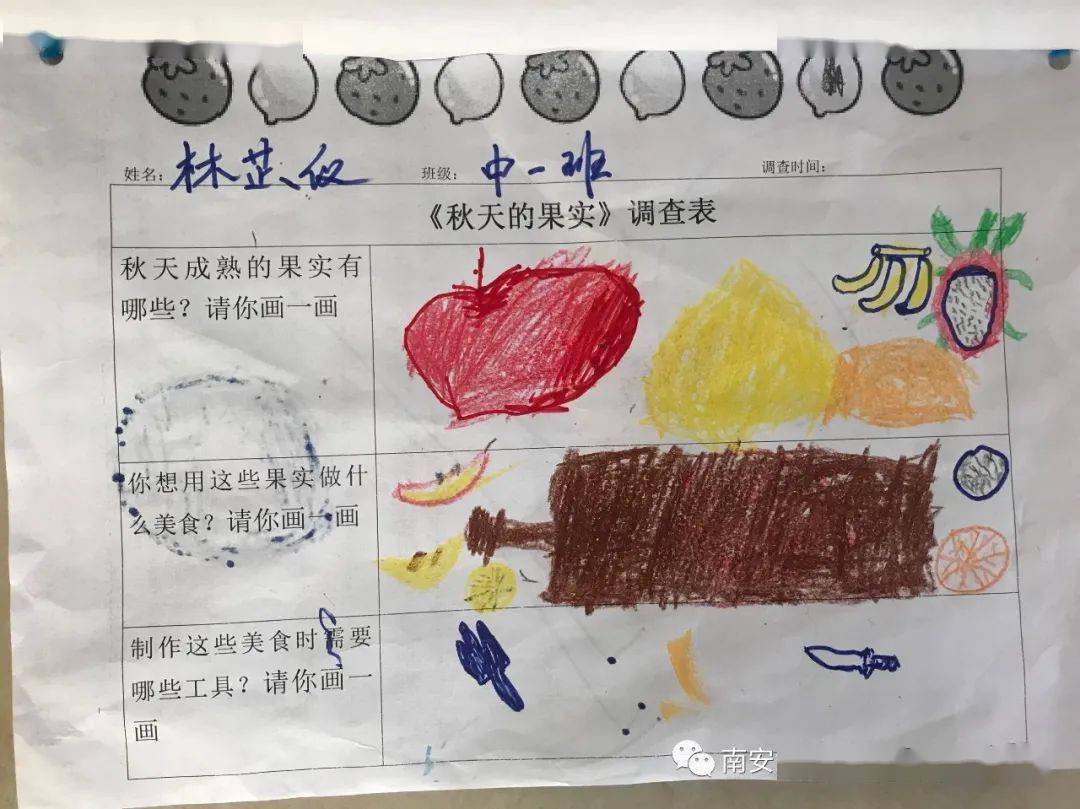 姓名：林芷伩 班级：中一班 调查时间：
《秋天的果实》调查表
秋天成熟的果实有
哪些？请你画一画
你想用这些果实做什
么美食？请你画一画
制作这些美食时需要
哪些工具？请你画一
画
南安